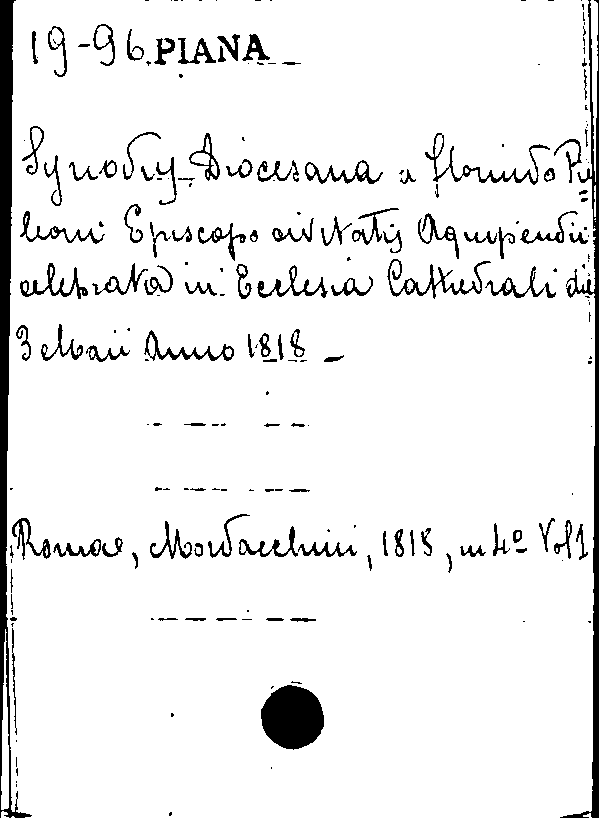 19-96 PIANA
Synodus Diocesana a Florindo Pie
leoni Episcopo civitatis Aquipendii
celebrata in Ecclesia Cathedrali die
3 Maii Anno 1818 -
Romae, Mordacchini, 1818, in 4º Vol 1